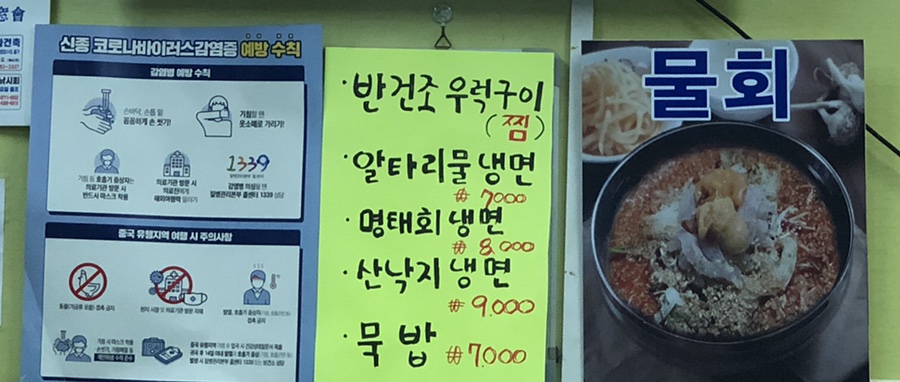 신종 코로나바이러스감염증 예방 수칙
감염병 예방 수칙
손바닥, 손톱 밑
꼼꼼하게 손 씻기!
기침할 땐
옷소매로 가리기!
기침 등 호흡기 증상자는
의료기관 방문 시
반드시 마스크 착용
의료기관 방문 시
의료진에게
해외여행력 알리기
1339
감염병 의심될 땐
질병관리본부 콜센터 1339 상담
중국 유행지역 여행 시 주의사항
동물(가금류 포함) 접촉 금지
현지 시장 및 의료기관 방문 자제
발열, 호흡기 증상자
접촉 금지
기침 시 마스크 착용
반건조 우럭구이
(찜)
알타리물냉면
₩7000
명태회냉면
₩8,000
산낙지냉면
₩9.000
묵밥 ₩7.000
물회